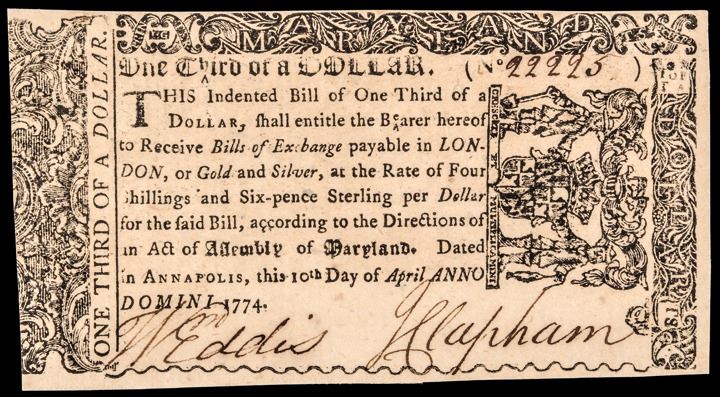 MARYLAND
One Third of a DOLLAR. (No 22225)
THIS Indented Bill of One Third of a
DOLLAR, shall entitle the Bearer hereof
to Receive Bills of Exchange payable in LON-
DON, or Gold and Silver, at the Rate of Four
Shillings and Six-pence Sterling per Dollar
for the said Bill, according to the Directions of
an Act of Assembly of Maryland. Dated
in ANNAPOLIS, this 10th Day of April ANNO
DOMINI 1774.
Wm Eddis JClapham
ONE THIRD OF A DOLLAR.